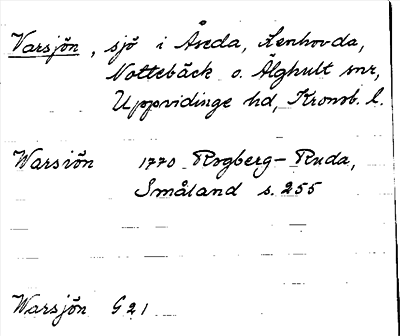 Varsjön, sjö i Åseda, Lenhovda,
Nottebäck o. Älghult snr,
Uppvidinge hd, Kronob. l.
Warsiön 1770 Rogberg-Ruda,
Småland s. 255
Warsjön G 21